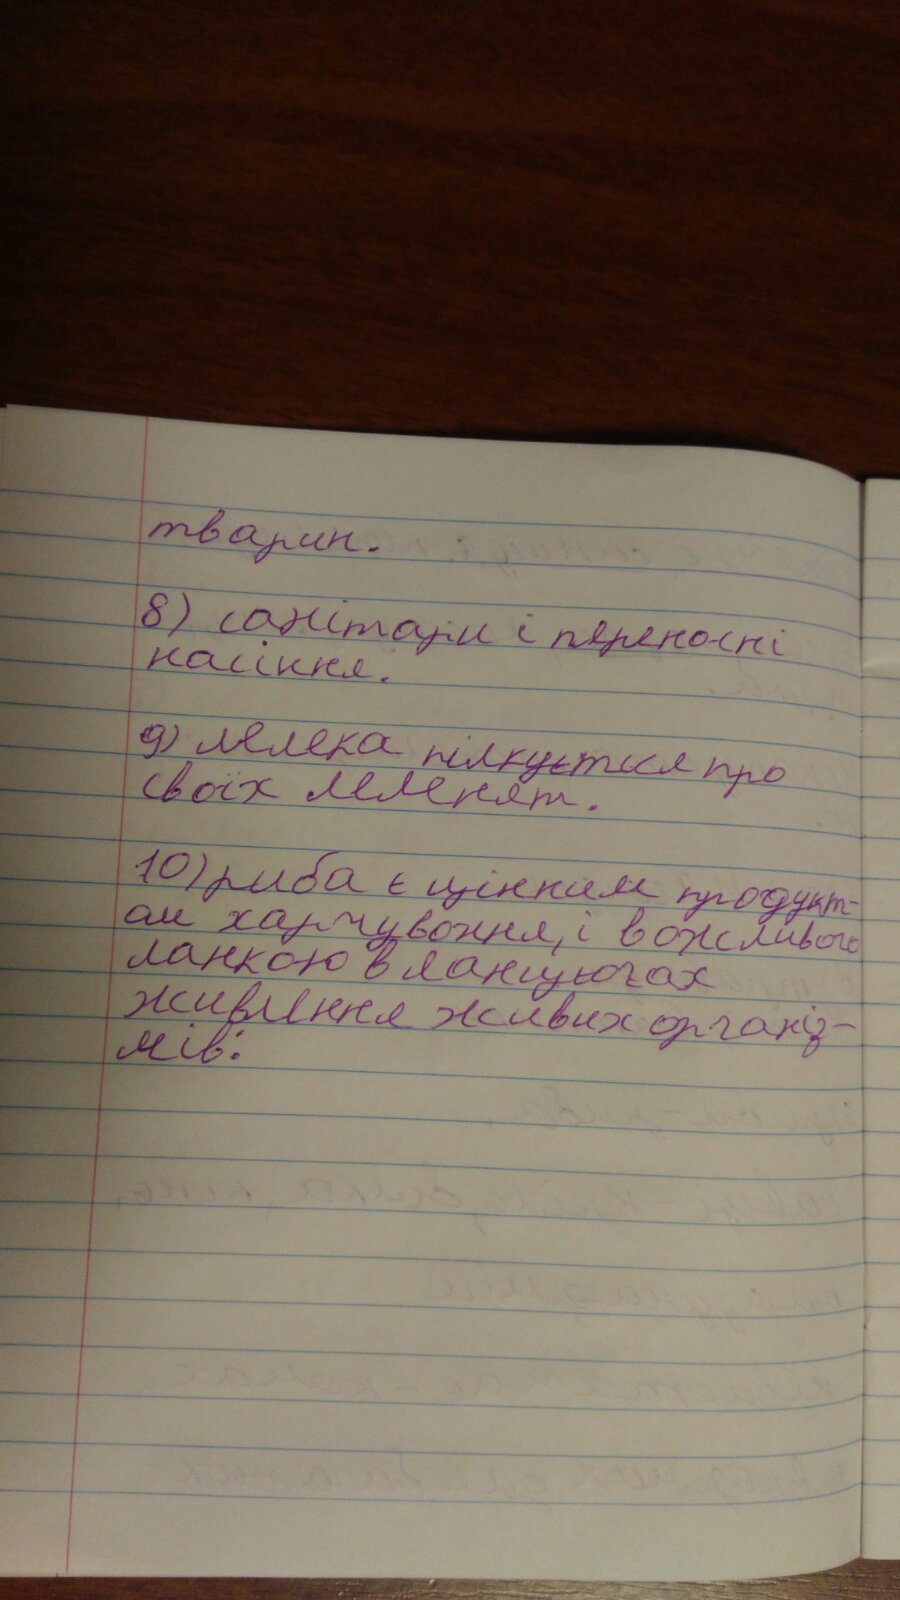 тварин.
8) санітари і переносні
насіння.
9) лелека піклується про
своїх леленят.
10) риба є цінним продукт-
ом харчування, і важливою
ланкою в ланцюгах
живлення живих організ-
мів.